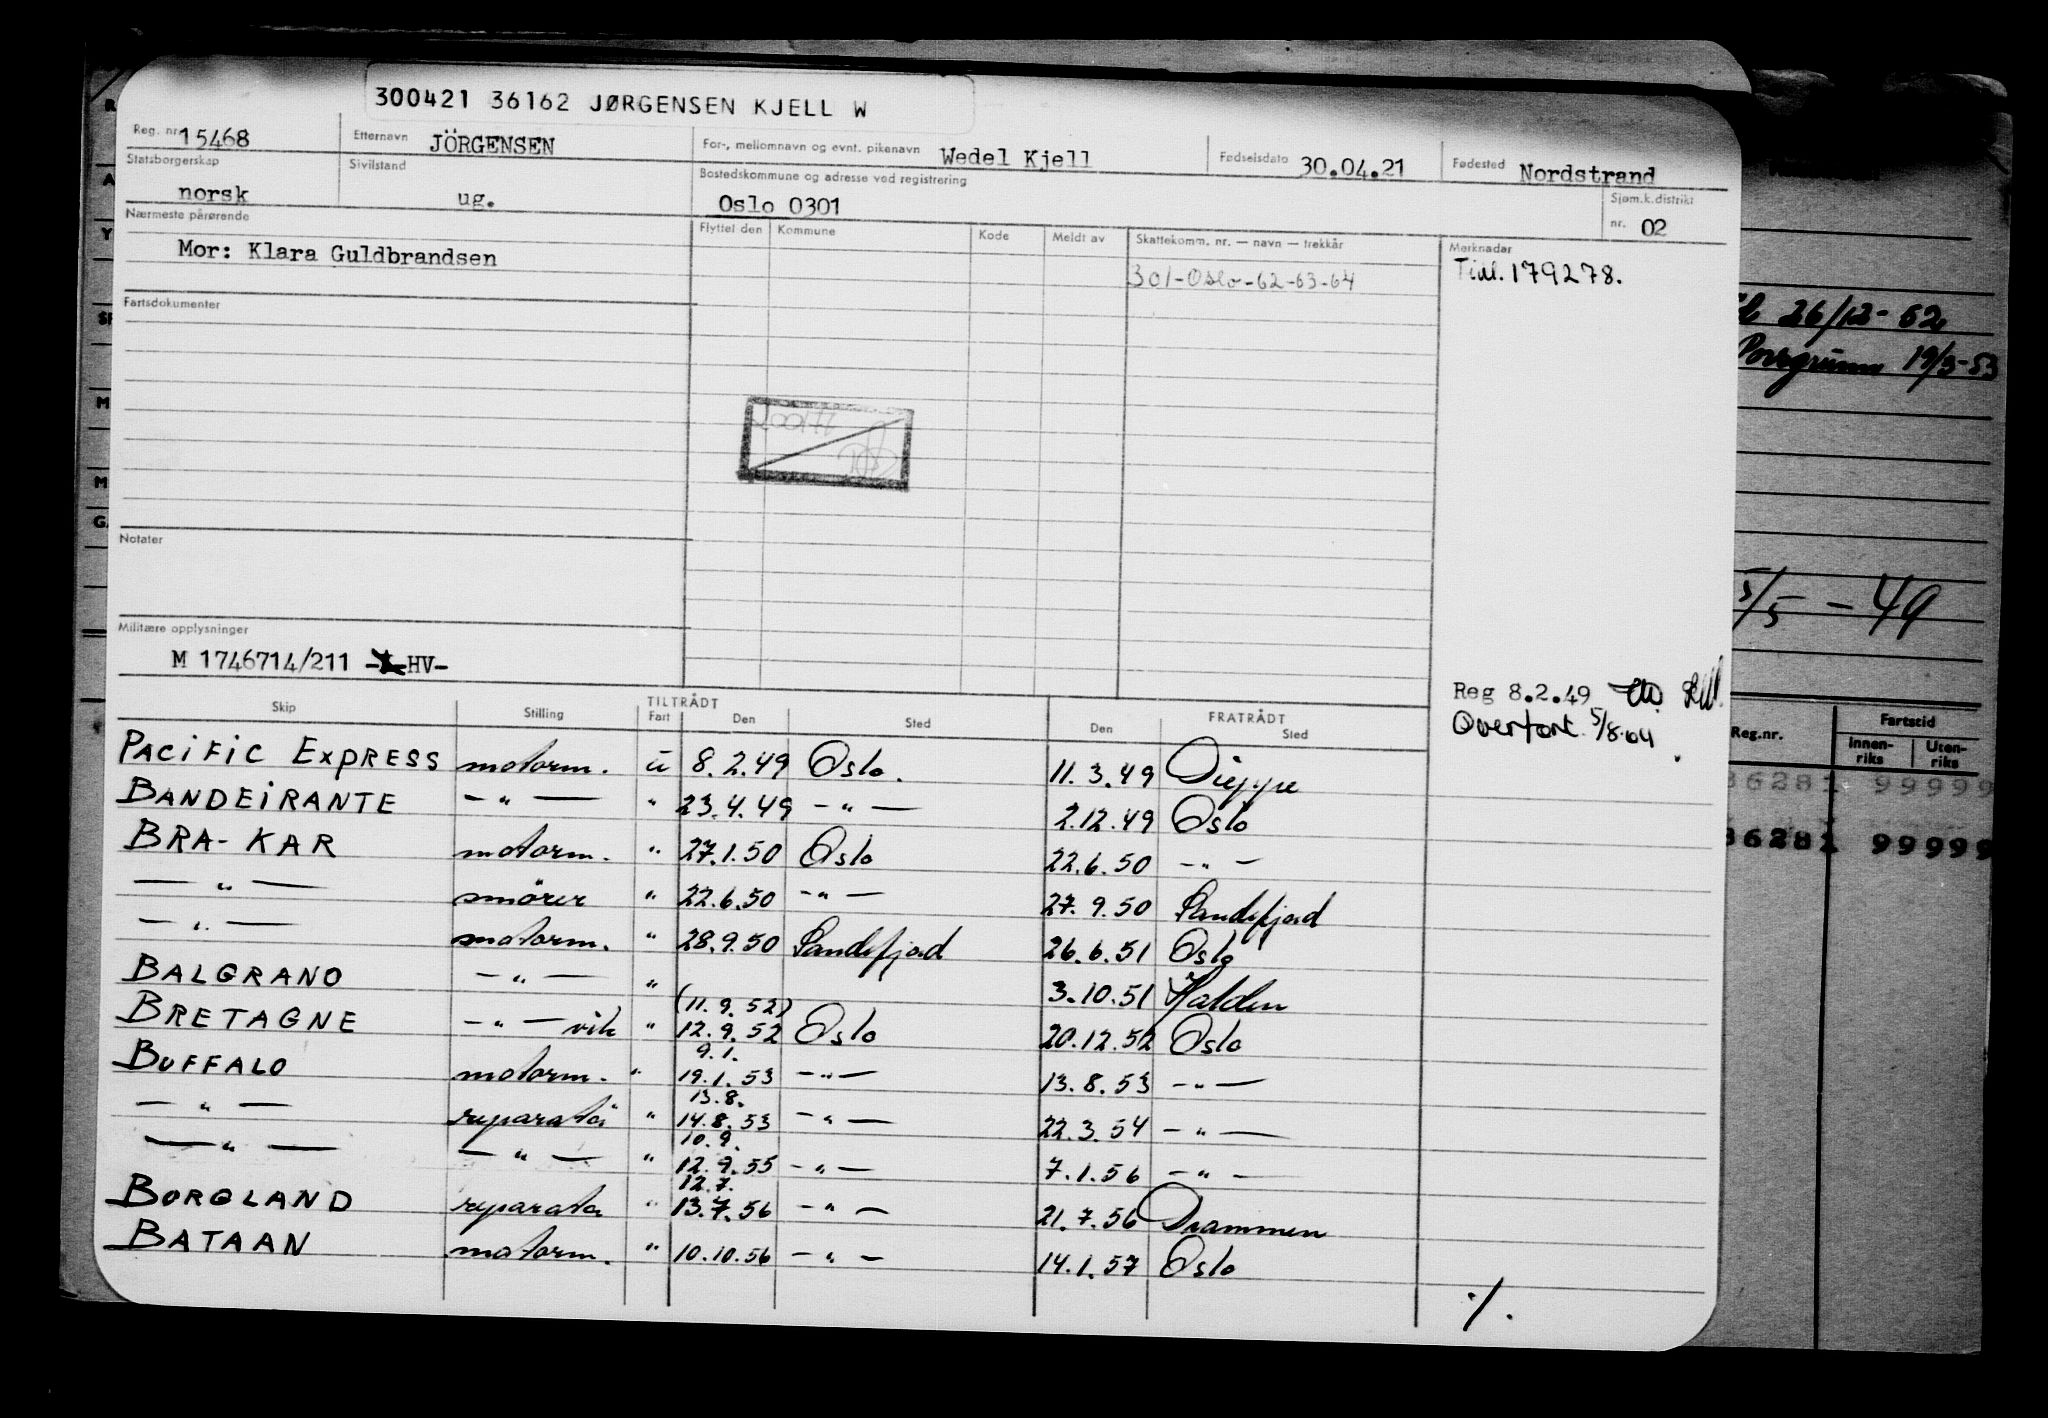 300421 36162 JØRGENSEN KJELL W
Reg. nr. 15468 Etternavn JÖRGENSEN For-, mellomnavn og evnt. pikenavn Wedel Kjell Fødselsdato 30.04.21 Fødested Nordstrand
Statsborgerskap norsk Sivilstand ug. Bostedskommune og adresse ved registrering Oslo 0301 Sjøm.k.distrikt nr. 02
Nærmeste pårørende Flyttet den Kommune Kode Meldt av Skattekomm. nr. — navn — trekkår Merknader
Mor: Klara Guldbrandsen 301-Oslo-62-63-64 Tidl. 179278.
Fartsdokumenter
Notater
Militære opplysninger
M 1746714/211 -HV-
Reg 8.2.49
Overført 5/8.64
Skip Stilling TILTRÅDT Fart Den Sted FRATRÅDT Den Sted
PACIFIC EXPRESS motorm. u 8.2.49 Oslo. 11.3.49 Dieppe
BANDEIRANTE — " — " 23.4.49 — " — 2.12.49 Oslo
BRA-KAR motorm. " 27.1.50 Oslo 22.6.50 — " —
— " — smörer " 22.6.50 — " — 27.9.50 Sandefjord
— " — motorm. " 28.9.50 Sandefjord 26.6.51 Oslo
BALGRANO — " — " 3.10.51 Halden
(11.9.52)
BRETAGNE — " — vik " 12.9.52 Oslo 20.12.52 Oslo
9.1.
BUFFALO motorm. " 19.1.53 — " — 13.8.53 — " —
13.8.
— " — reparatör " 14.8.53 — " — 22.3.54 — " —
10.9.
— " — — " — " 12.9.55 — " — 7.1.56 — " —
12.7.
BORGLAND reparatör " 13.7.56 — " — 21.7.56 Drammen
BATAAN motorm. " 10.10.56 — " — 14.1.57 Oslo
./.
26/12-52
Porsgrunn 19/3-53
5/5-49
Reg.nr. Fartstid
Innen-riks Uten-riks
36281 99999
36281 99999